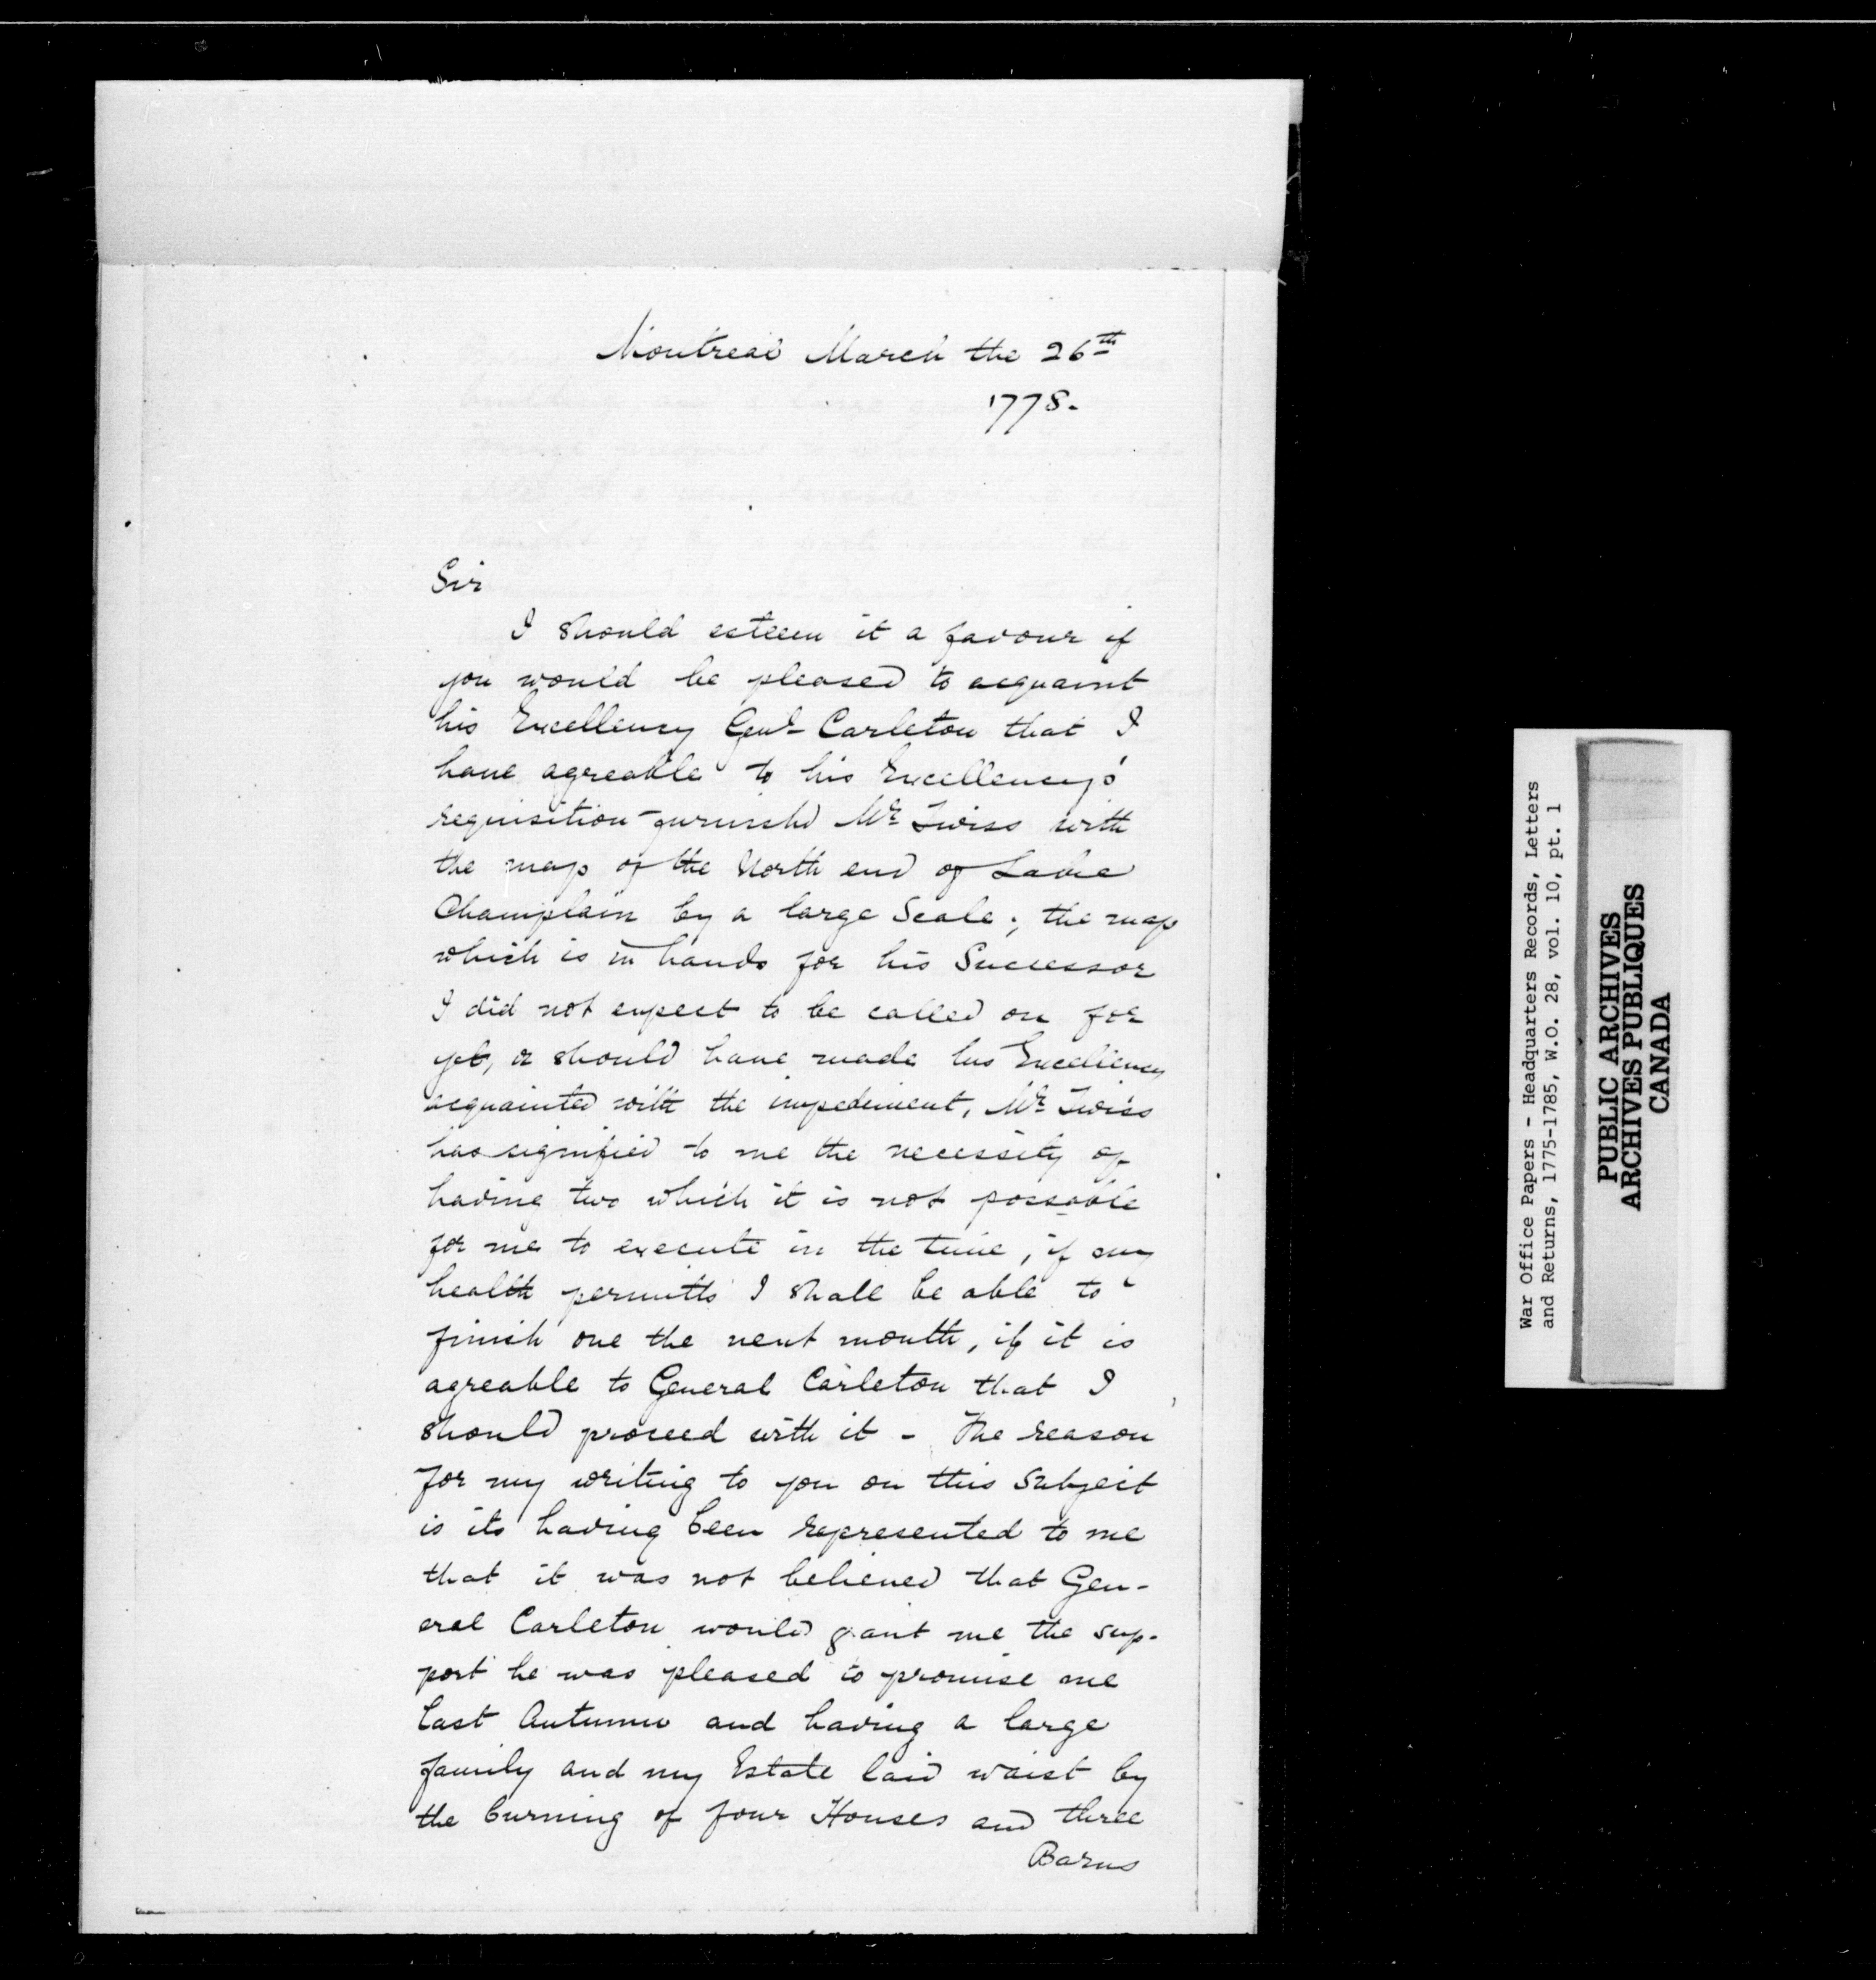 Montreal March the 26th
1778.
Sir
I should esteem it a favour if
you would be pleased to acquaint
his Excellency Genl Carleton that I
have agreable to his Excellency's
requisition furnishd Mr Twiss with
the map of the North end of Lake
Champlain by a large Scale; the map
which is in hands for his Successor
I did not expect to be called on for
yet, or should have made his Excellency
acquainted with the impediment, Mr Twiss
has signified to me the necessity of
having two which it is not possable
for me to execute in the time, if my
health permitts I shall be able to
finish one the next month, if it is
agreable to General Carleton that I
should proceed with it - The reason
for my writing to you on this Subject
is its having been represented to me
that it was not believed that Gen-
eral Carleton would grant me the sup-
port he was pleased to promise me
last Autumn and having a large
family and my Estate laid waist by
the burning of four Houses and three
Barns
War Office Papers - Headquarters Records, Letters
and Returns, 1775-1785, W.O. 28, vol. 10, pt. 1
PUBLIC ARCHIVES
ARCHIVES PUBLIQUES
CANADA